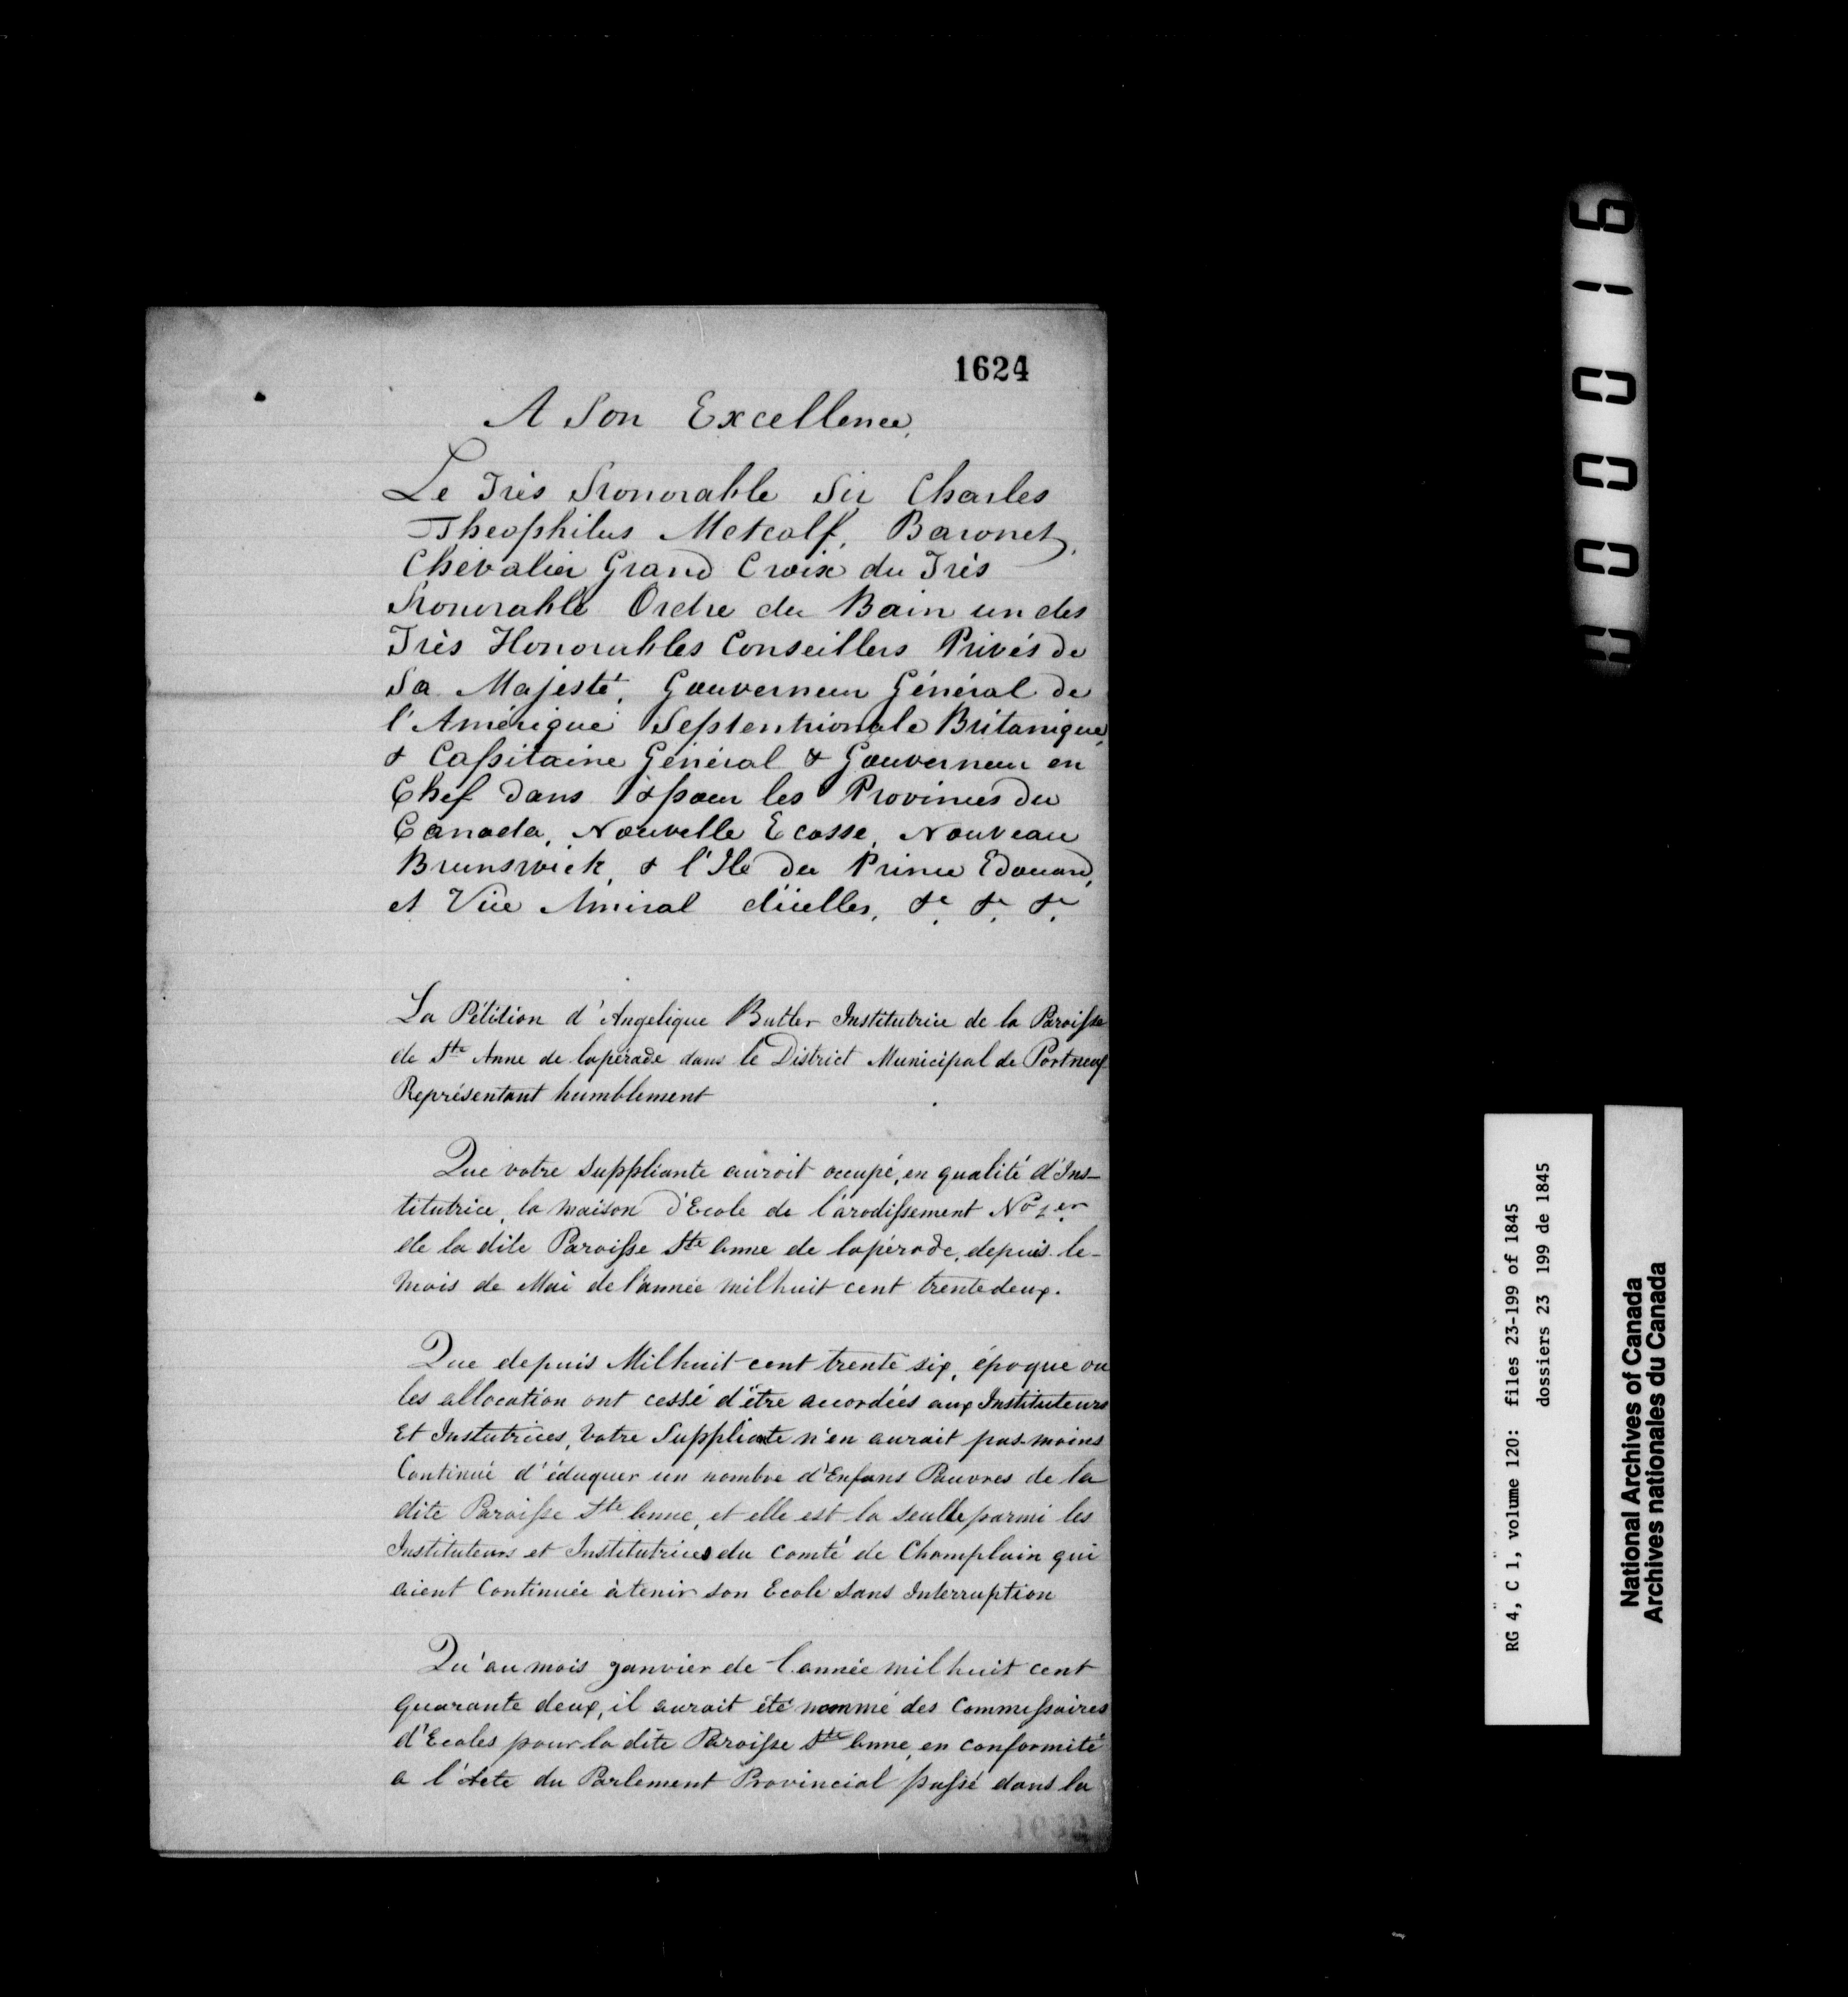 1624
A Son Excellence,
Le Très Honorable Sir Charles
Theophilus Metcalf, Baronet,
Chevalier Grand Croix du Très
Honorable Ordre du Bain un des
Très Honorables Conseillers Privés de
Sa Majesté, Gouverneur Général de
l'Amérique Septentrionale Britanique,
& Capitaine Général & Gouverneur en
Chef dans & pour les Provinces du
Canada, Nouvelle Ecosse, Nouveau
Brunswick, & l'Ile du Prince Edouard,
et Vice Amiral d'icelles, &c. &c. &c.
La Pétition d'Angelique Butler Institutrice de la Paroisse
de Ste Anne de lapérade dans le District Municipal de Portneuf
Représentant humblement
Que votre Suppliante auroit occupé, en qualité d'Ins-
titutrice, la maison d'Ecole de l'arodissement No 1er
de la dite Paroisse Ste Anne de lapérade, depuis le-
mois de Mai de l'année mil huit cent trente deux.
Que depuis Mil huit cent trente six, époque ou
les allocation ont cessé d'être accordées aux Instituteurs
Et Instutrices, Votre Suppliante n'en aurait pas moins
Continué d'éduquer un nombre d'Enfans Pauvres de la
dite Paroisse Ste Anne, et elle est la seulle parmi les
Instituteurs et Institutrices du Comté de Champlain qui
aient Continuée à tenir son Ecole sans Interruption
Qu'au mois Janvier de l'année mil huit cent
quarante deux, il aurait été nommé des Commissaires
d'Ecoles pour la dite Paroisse Ste Anne, en conformité
a l'Acte du Parlement Provincial passé dans la
1632
000016
RG 4, C 1, volume 120: files 23-199 of 1845
dossiers 23 199 de 1845
National Archives of Canada
Archives nationales du Canada